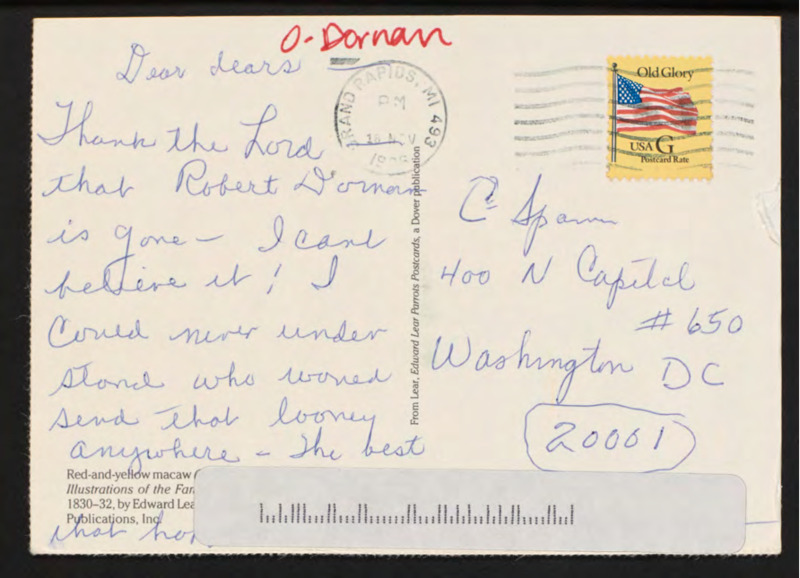 O-Dornan
Dear dears
Thank the Lord
that Robert Dornan
is gone – I cant
believe it! I
Could never under
stand who would
send that looney
anywhere – The best
that
GRAND RAPIDS, MI 493
PM
NOV
Old Glory
USA G
Postcard Rate
C- Spann
400 N Capitol
#650
Washington DC
20001
From Lear, Edward Lear Parrots Postcards, a Dover publication
Red-and-yellow macaw
Illustrations of the
1830–32, by Edward
Publications, Inc.